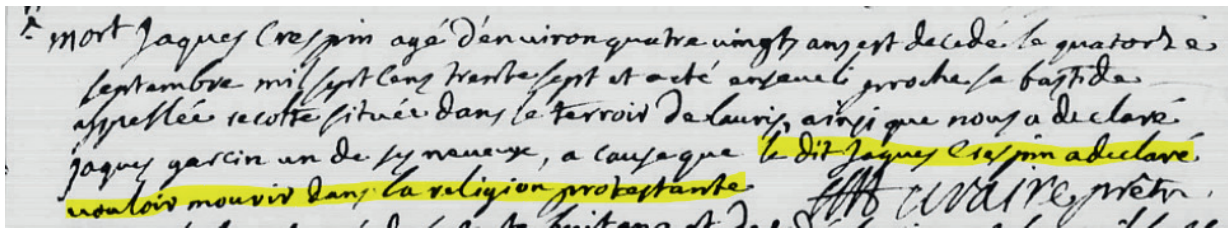 mort Jaques Crespin agé d'environ quatre vingts ans est decedé le quatorze
septembre mil sept cens trente sept et a eté enseveli proche sa bastide
appellée recolte située dans le terroir de lauris, ainsi que nous a declaré
jaques garcin un de ses neveux, a cause que le dit Jaques Crespin a declaré
vouloir mourir dans la religion protestante prêtre